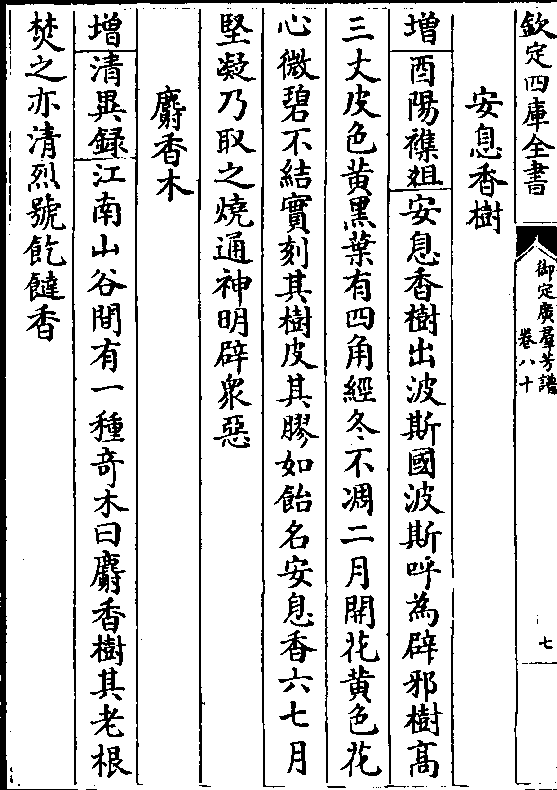 欽定四庫全書
御定廣羣芳譜
卷八十
七
安息香樹
增酉陽襍俎安息香樹出波斯國波斯呼為辟邪樹高
三丈皮色黄黑葉有四角經冬不凋二月開花黄色花
心微碧不結實刻其樹皮其膠如飴名安息香六七月
堅凝乃取之燒通神明辟衆惡
麝香木
增清異録江南山谷間有一種竒木曰麝香樹其老根
焚之亦清烈號飣䭞香